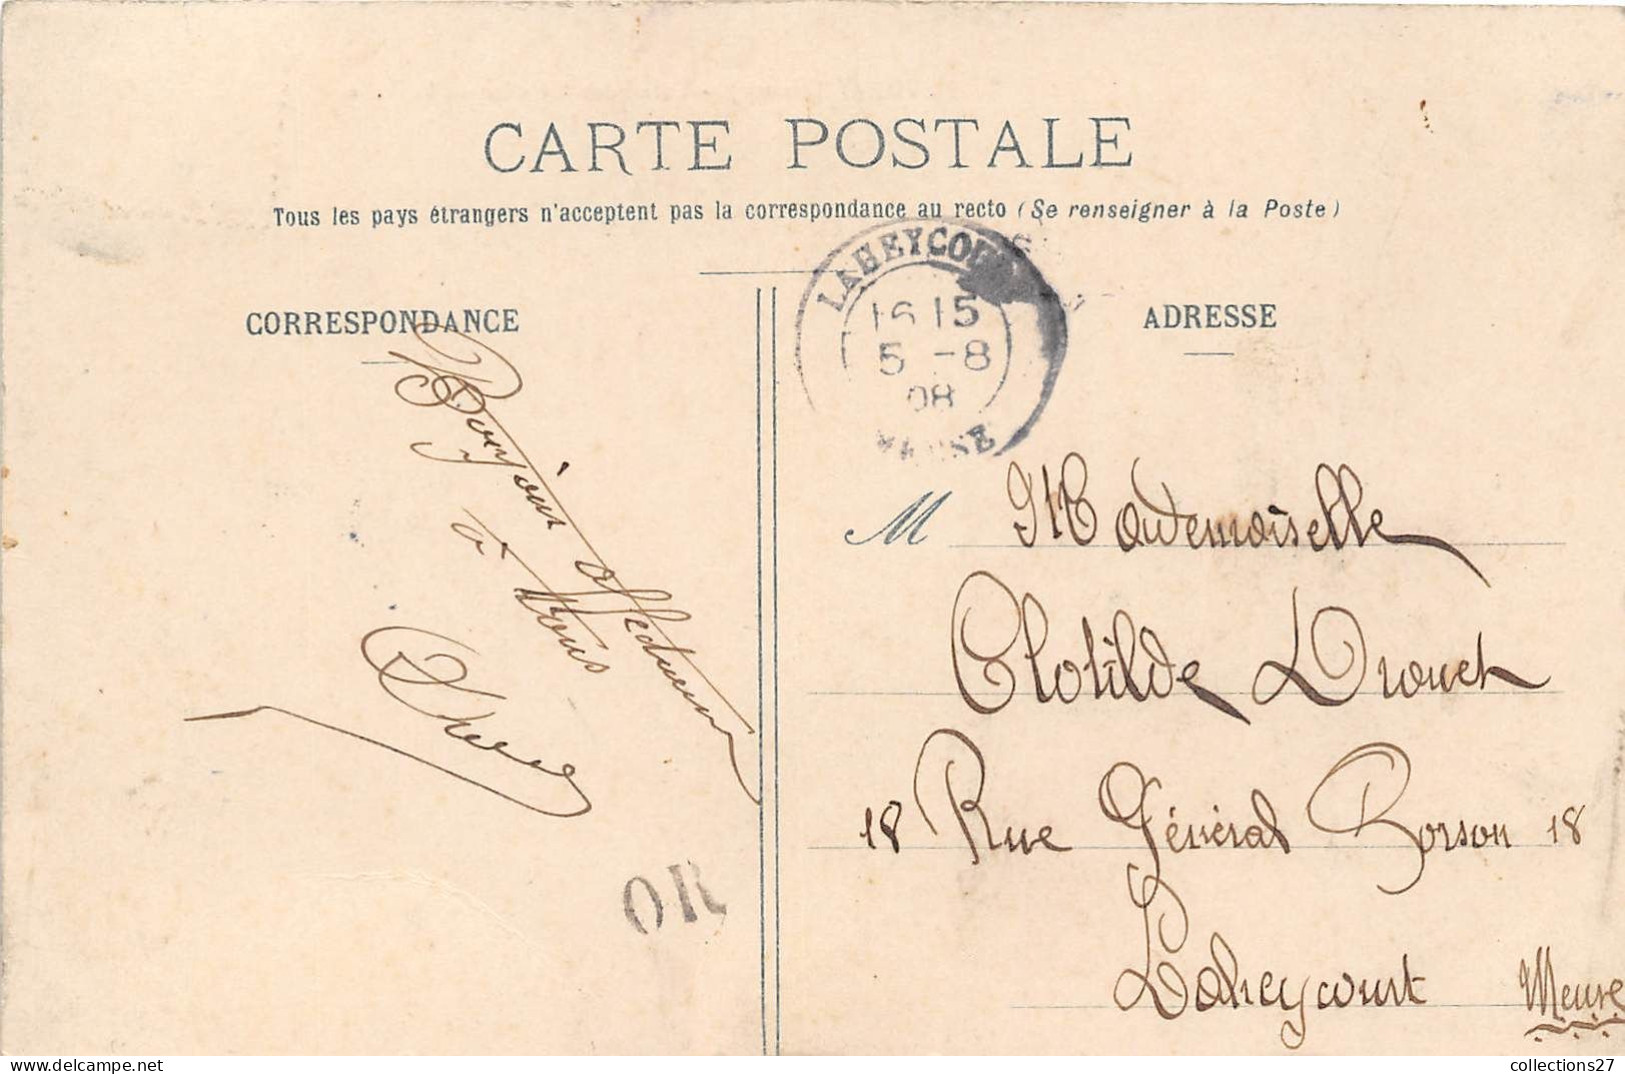 CARTE POSTALE
Tous les pays étrangers n'acceptent pas la correspondance au recto (Se renseigner à la Poste)
CORRESPONDANCE
ADRESSE
LAHEYCOURT
16 15
5 -8
08
MEUSE
Bonjour affectueux
à tous
M Mademoiselle
Clotilde Drouet
18 Rue Général Borson 18
Laheycourt Meuse
OR
collections27